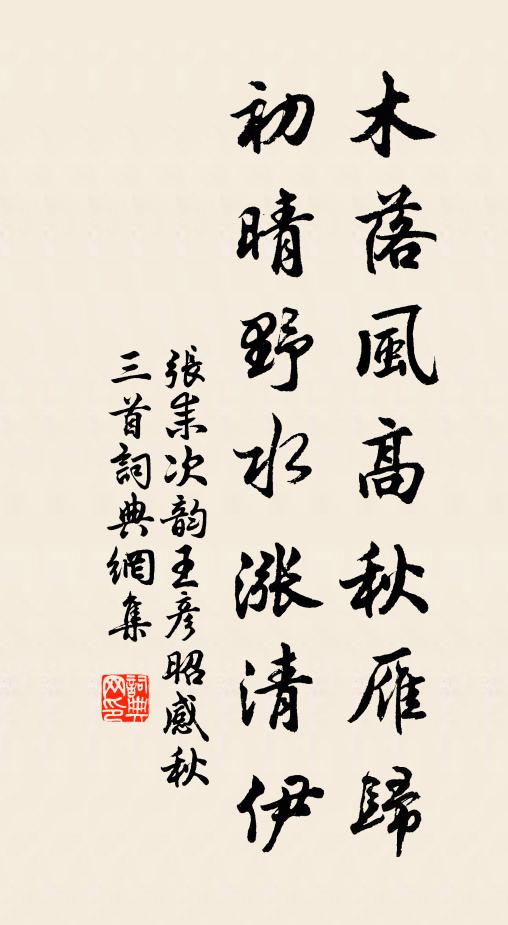 木落風高秋雁歸
初晴野水漲清伊
張耒次韵王彦昭感秋
三首詞典網集
詞典
网印